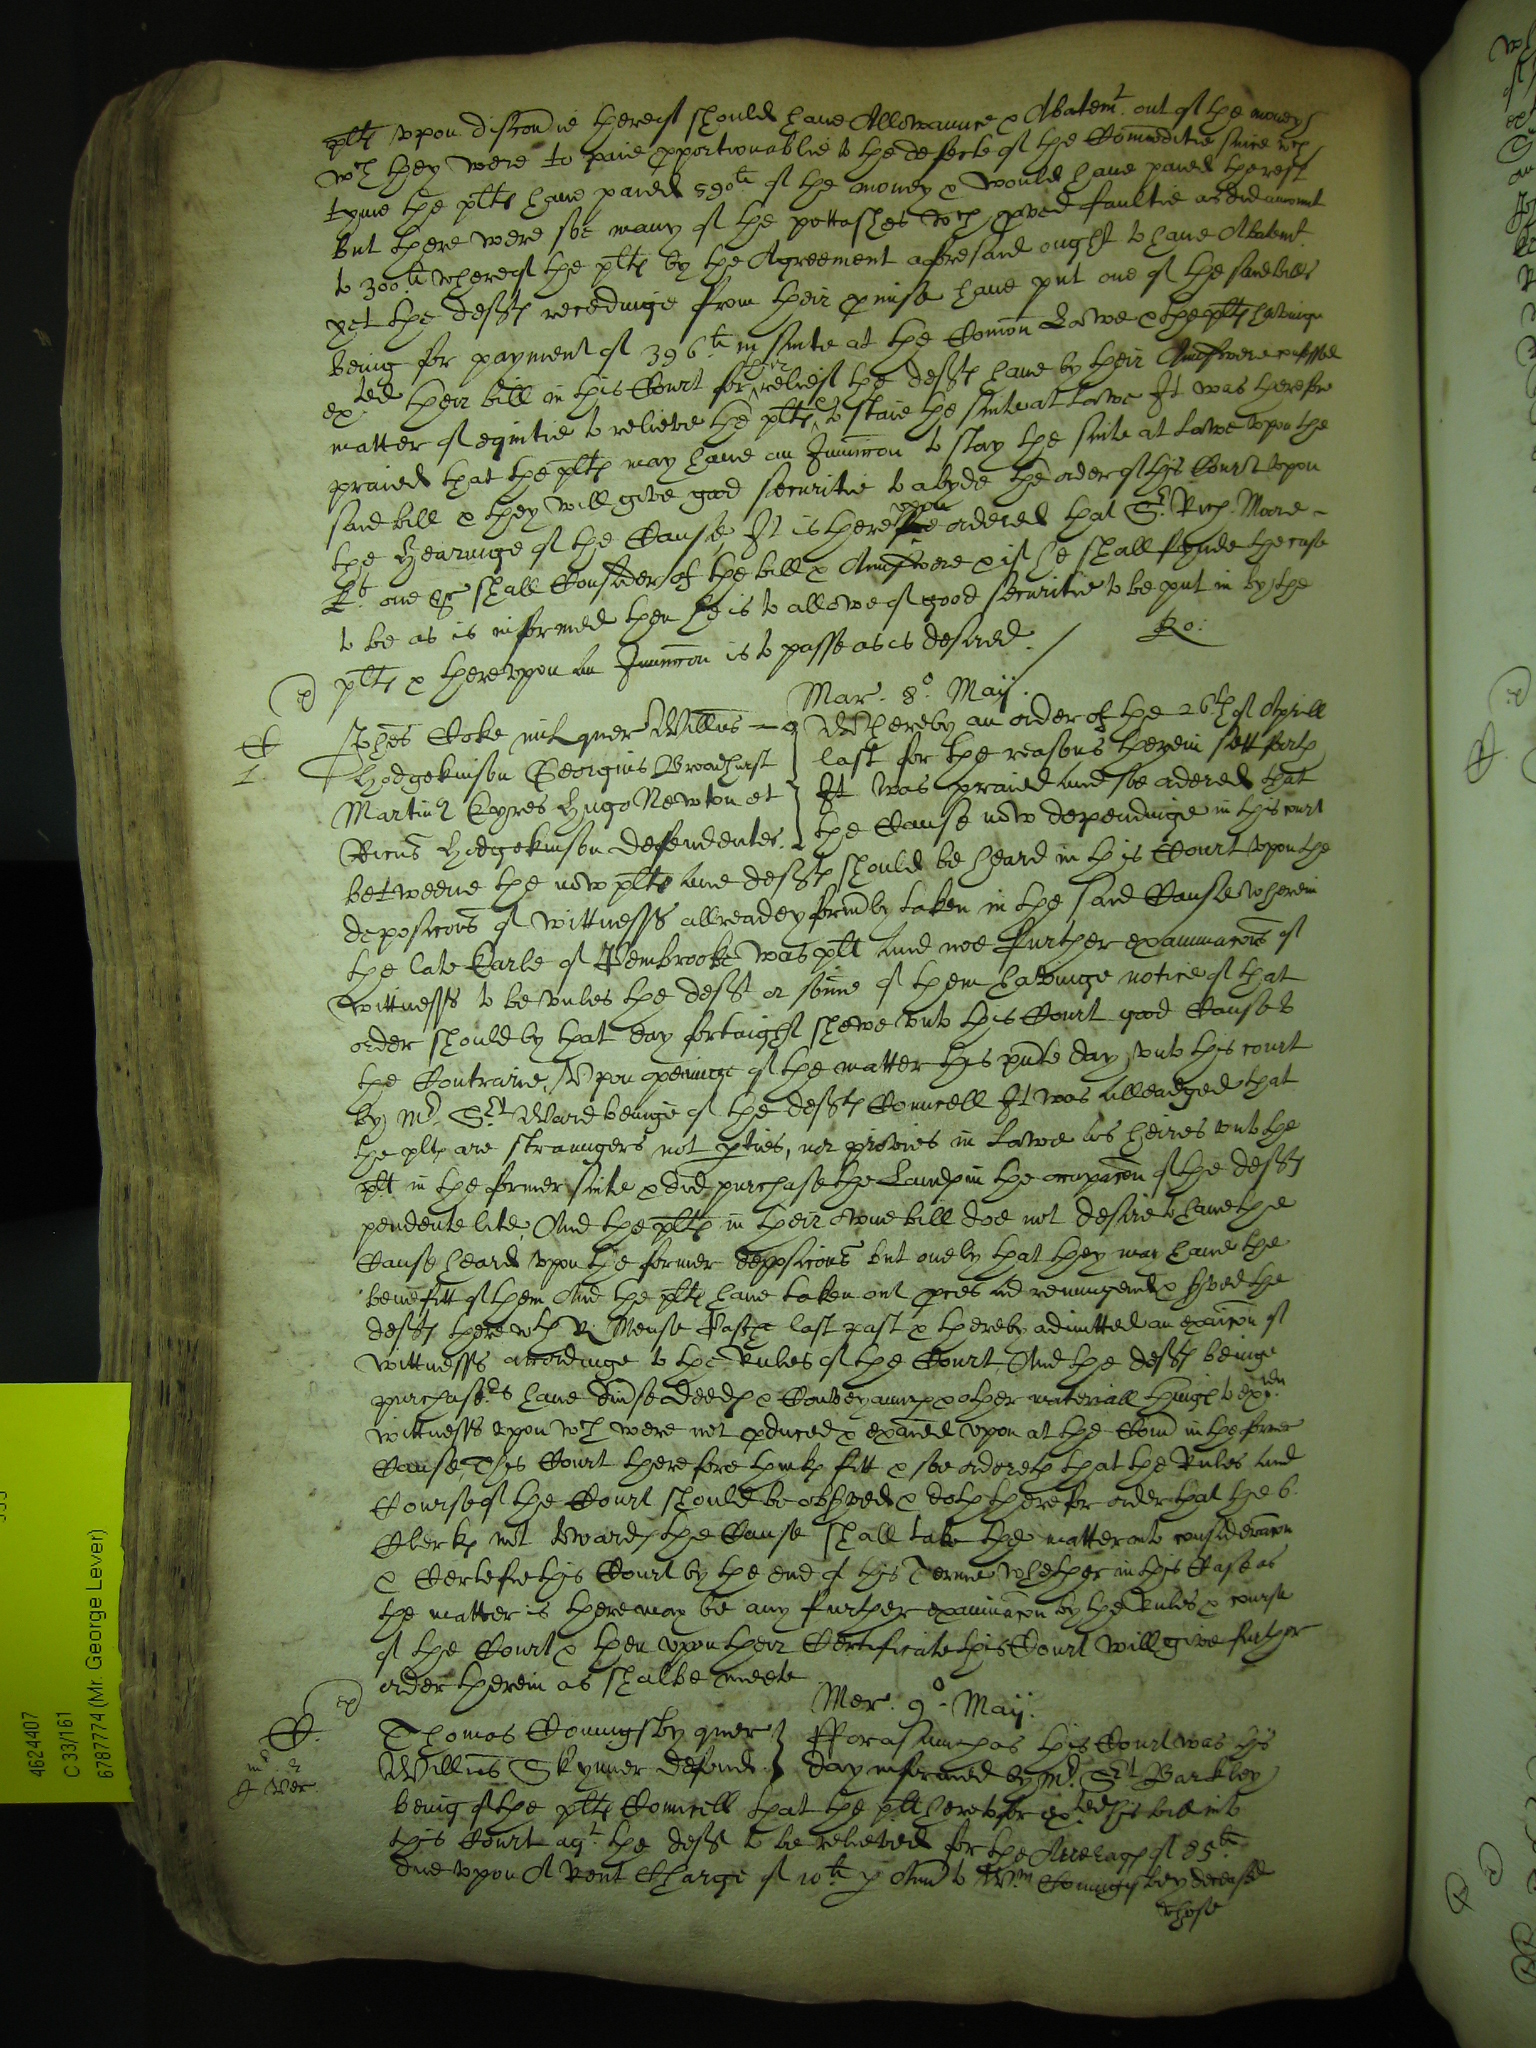 plts vpon discouie thereof should haue Allowaunce & Abatemt. out of the moneys
wch they were to paie pportionablie to the defecte of the Commoditie since wch
tyme the plts haue paied 590li of the money & would haue paied the rest
But there were soe many of the pottashes wch pved faultie as did amount
to 300li whereof the plts by the Agreement aforesaid ought to haue Abatemt.
yet the defts recedinge from their pmise haue put one of the said bills
being for payment of 396li in suite at the Comon Lawe & the plts havinge
exted their bill in this Court for their releif the defts haue by their Answere confessed
matter of equitie to relieve the plts & to staie the suite at Lawe It was therefore
praied that the plts may haue an Iniuncon to stay the suite at Lawe vpon the
said bill & they will give good securitie to abyde the order of this Court vpon
the Hearinge of the Cause, It is therevpon ordered that Sr. Rich. Moore
Kt. one &c shall Consider of the bill & Answere & if he shall fynde the case
to be as is informed then he is to allowe of good securitie to be put in by the
plts & therevpon an Iniuncon is to passe as is desired. / Ro:
Mar. 8o. Maij.
C
1
Johes Coke mil quer Willus
Hodgekinson Georgius Broadhurst
Martin Eyres Hugo Newton et
Ricus Hodgekinson defendentes.
Whereby an order of the 26th of Aprill
last for the reasons therein sett forth
It was praied and soe ordered that
the Cause now dependinge in this court
betweene the now plts and defts should be heard in this Court vpon the
deposicons of wittnesss allreadey formly taken in the said Cause wherein
the late Earle of Pembrooke was plt and noe further examinacons of
wittnesss to be vnles the deft or some of them havinge notice of that
order should by that day fortnight shewe vnto this Court good Cause to
the Contrarie, Vpon openinge of the matter this pnte day vnto this court
by Mr. Srt Ward beinge of the defts Councell It was alleadged that
the plts are straungers not pties, nor privies in Lawe as heires vnto the
plt in the former suite & did purchase the Lands in the occupacon of the defts
pendente lite, And the plts in their owne bill doe not desire to haue the
Cause heard vpon the former deposicons but onely that they may haue the
benefitt of them And the plts haue taken out pces ad reiungend & sved the
defts therewth R: Mense Pasche last past & thereby admitted an exaicon of
wittnesss accordinge to the Rules of the Court, And the defts beinge
purchasers haue diuse deeds & Conveyaunces & other materiall things to exie
wittnesss vpon wch were not pduced & exaied vpon at the Comn in the former
Cause, This Court therefore thinks fitt & soe ordereth that the Rules and
Course of the Court should be obsved & doth therefor order that the 6.
Clerks not towards the Cause shall take the matter into consideracon
& Certefie this Court by the end of this Terme whether in this Case as
the matter is there may be any further examinacon by the Rules & course
of the Court & then vpon their Certificate this Court will give further
order therein as shalbe meete
Mer. 9o. Maij.
C.
Thomas Coningsby quer
Willius Skynner defend.
Forasmuch as this Court was this
day informed by Mr. Srt Barkley
being of the plts Councell that the plt heretofor exted his bill into
this Court agt. the deft to be releived for the Arerages of 85li
due vpon A Rent Charge of 10li p Ann to Wm Coningsbey deceased
whose
4624407
C 33/161
6787774 (Mr. George Lever)